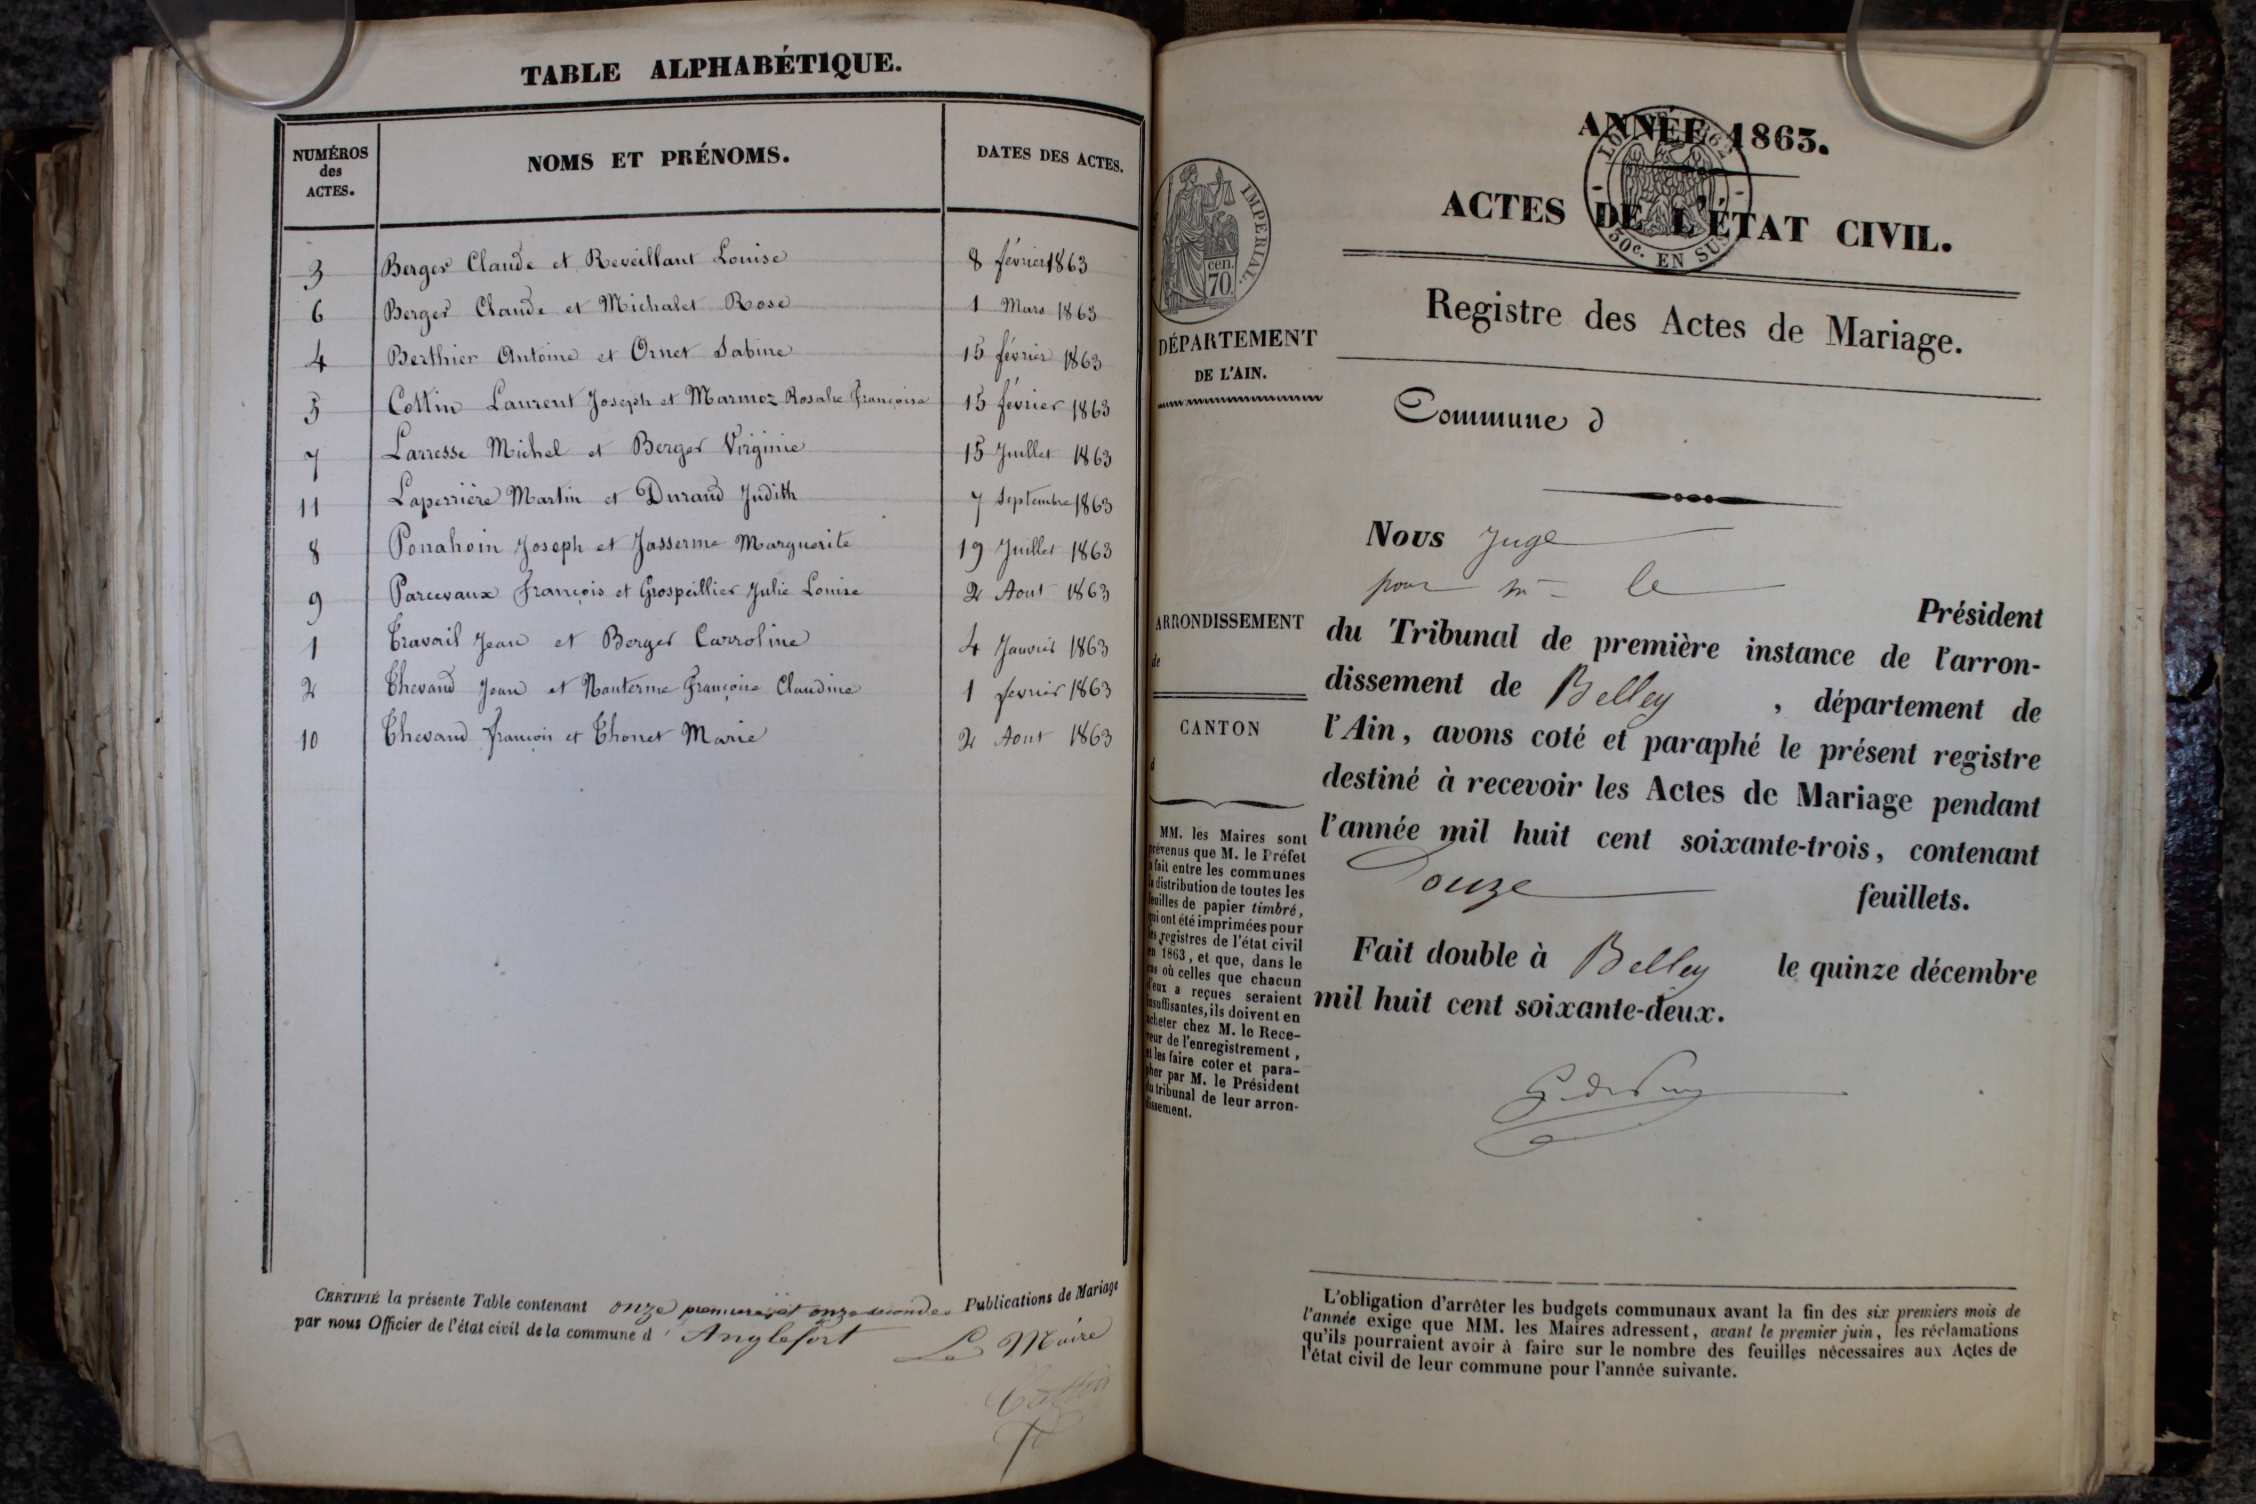 TABLE ALPHABÉTIQUE.
NUMÉROS des ACTES.
NOMS ET PRÉNOMS.
DATES DES ACTES.
3 Berger Claude et Reveillant Louise 8 février 1863
6 Berger Claude et Michalet Rose 1 Mars 1863
4 Berthier Antoine et Ornet Sabine 15 février 1863
5 Cottin Laurent Joseph et Marmoz Rosalie Françoise 15 février 1863
7 Larresse Michel et Berger Virginie 15 Juillet 1863
11 Laperrière Martin et Durand Judith 7 Septembre 1863
8 Joseph et Jasserme Marguerite 19 Juillet 1863
9 Parcevaux François et Grospeillier Julie Louise 2 Aout 1863
1 Travail Jean et Berger Carroline 4 Janvier 1863
2 Thevand Jean et Nanterme Françoise Claudine 1 fevrier 1863
10 Thevand François et Thonet Marie 2 Aout 1863
CERTIFIÉ la présente Table contenant onze premieres et onze secondes Publications de Mariage
par nous Officier de l'état civil de la commune d' Anglefort
Le Maire
Cottin
ANNÉE 1863.
ACTES DE L'ÉTAT CIVIL.
30c. EN SUS
IMPERIAL.
cen.
70
Registre des Actes de Mariage.
DÉPARTEMENT
DE L'AIN.
Commune d
ARRONDISSEMENT
de
CANTON
d
MM. les Maires sont
prévenus que M. le Préfet
a fait entre les communes
la distribution de toutes les
feuilles de papier timbré,
qui ont été imprimées pour
les registres de l'état civil
en 1863, et que, dans le
cas où celles que chacun
d'eux a reçues seraient
insuffisantes, ils doivent en
acheter chez M. le Rece-
veur de l'enregistrement,
et les faire coter et para-
pher par M. le Président
du tribunal de leur arron-
dissement.
Nous Juge
pour le
Président
du Tribunal de première instance de l'arron-
dissement de Belley, département de
l'Ain, avons coté et paraphé le présent registre
destiné à recevoir les Actes de Mariage pendant
l'année mil huit cent soixante-trois, contenant
Douze feuillets.
Fait double à Belley le quinze décembre
mil huit cent soixante-deux.
L'obligation d'arrêter les budgets communaux avant la fin des six premiers mois de
l'année exige que MM. les Maires adressent, avant le premier juin, les réclamations
qu'ils pourraient avoir à faire sur le nombre des feuilles nécessaires aux Actes de
l'état civil de leur commune pour l'année suivante.